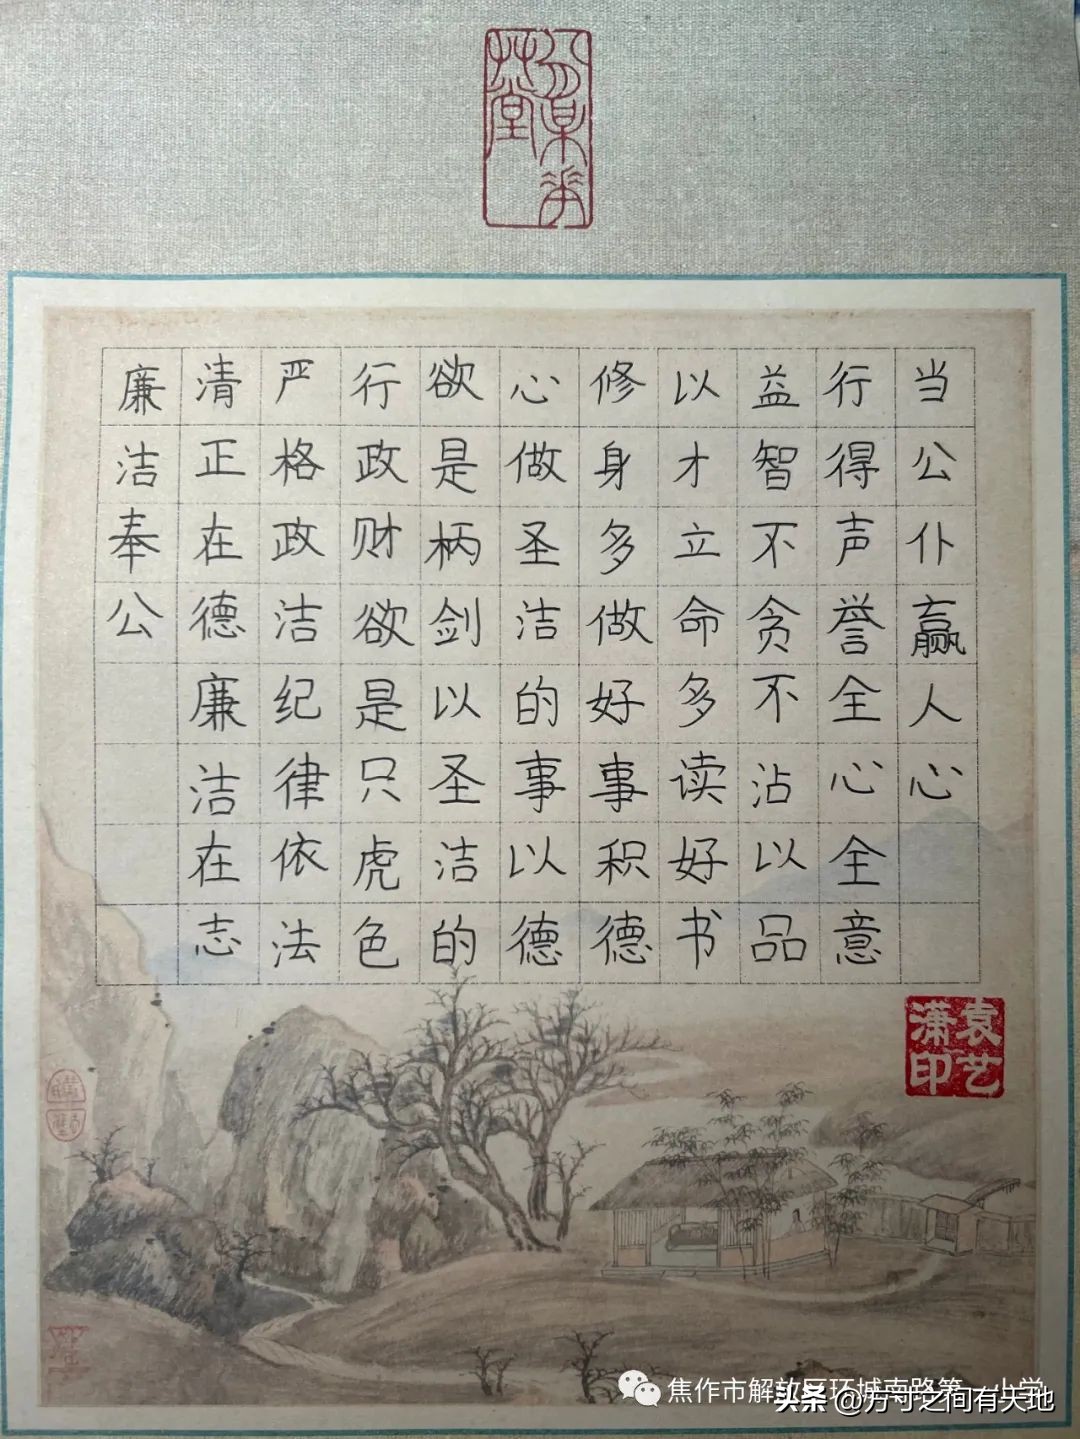 廉洁奉公
清正在德廉洁在志
严格政洁纪律依法
行政财欲是只虎色
欲是柄剑以圣洁的
心做圣洁的事以德
修身多做好事积德
以才立命多读好书
益智不贪不沾以品
行得声誉全心全意
当公仆赢人心
袁艺
潇印
焦作市解放区环城南路第一小学
头条 @方寸之间有天地